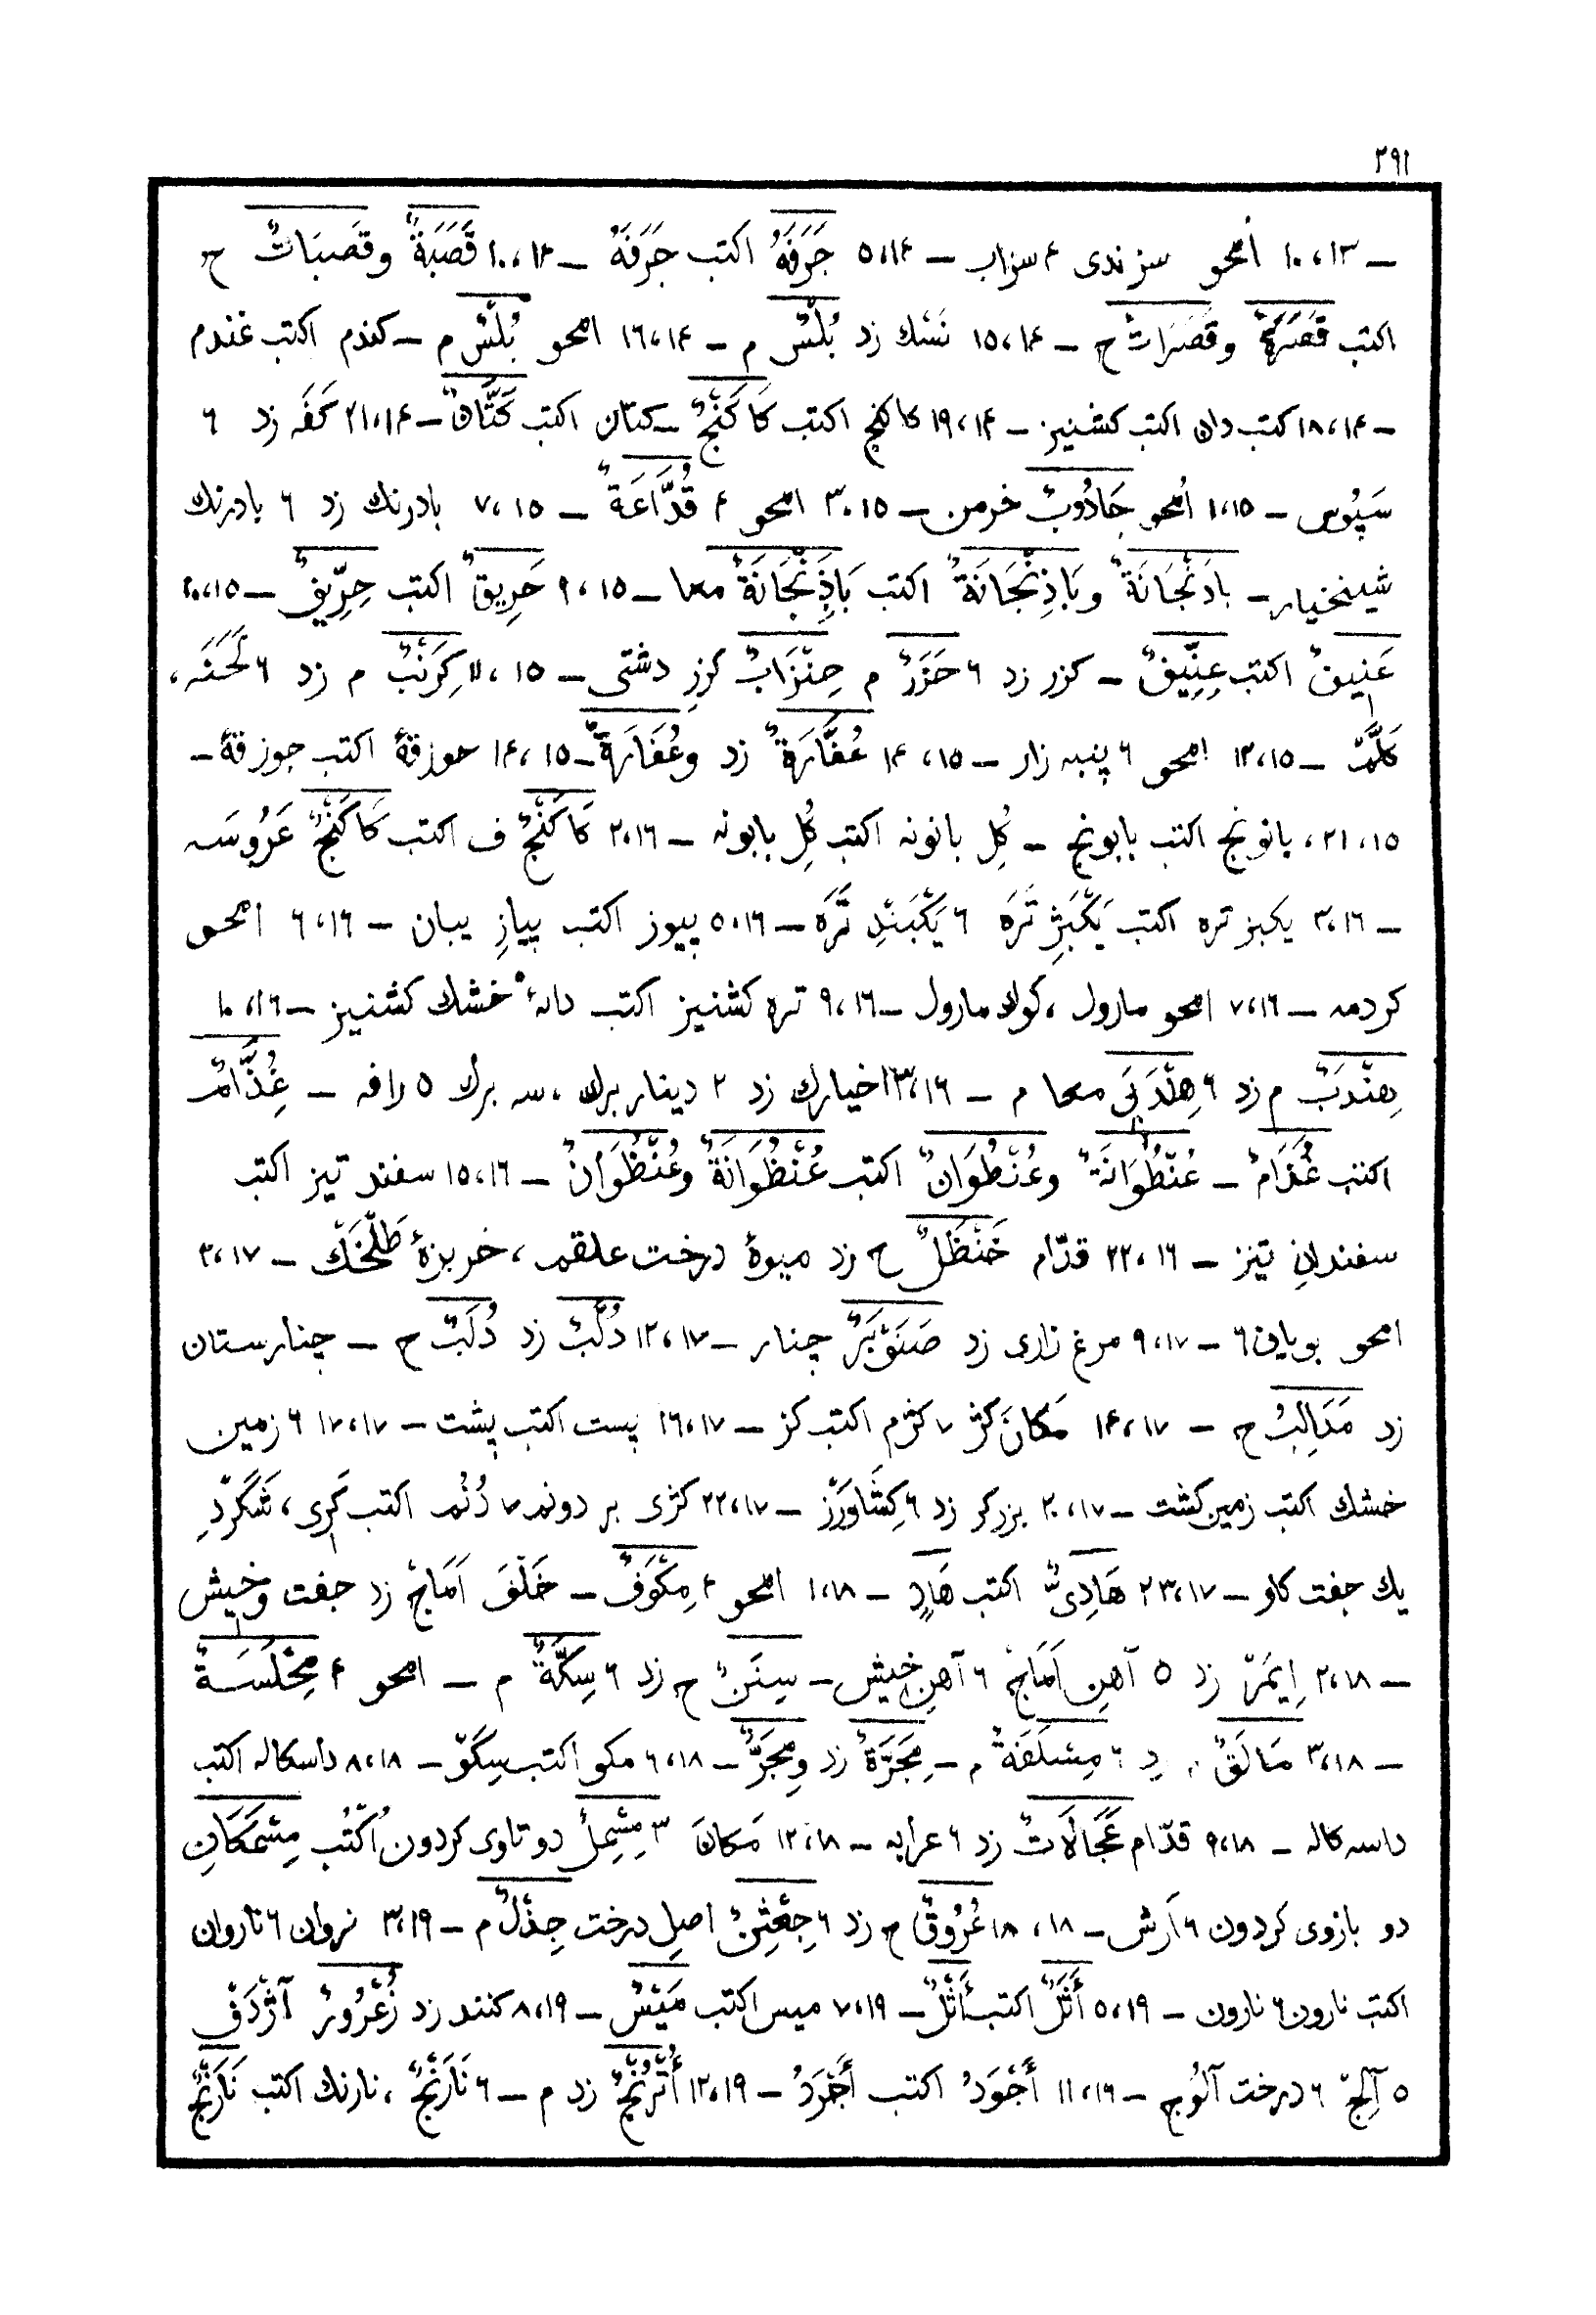 ٢٩١
ـ ١٠،١٣ اُمحو سزندى ٤ سزاب ـ ٥،١۴ جَرَفَةٌ اكتب جَرَفَةٌ ـ ١٠،١۴ قَصَبَةٌ وقَصَبَاتٌ ح
اكتب قَصَرَةٌ وقَصَرَاتٌ ح ـ ١٥،١۴ نَسْك زد بُلْسٌ م ـ ١٦،١۴ امحو بُلْسٌ م ـ كندم اكتب غندم
ـ ١٨،١۴ كتب دان اكتب كشنيز ـ ١٩،١۴ كاكنج اكتب كَاكَنْجٌ ـ كتان اكتب كَتَّانٌ ـ ٢١،١۴ كَفَه زد ٦
سَپُوس ـ ١،١٥ اُمحو جَادُوبٌ خرمن ـ ٣،١٥ امحو ۴ قُدَّاعَةٌ ـ ٧،١٥ بادرنك زد ٦ بادرنك
شينخيار ـ بادَنْجَانَةٌ وبَاذِنْجَانَةٌ اكتب بَاذِنْجَانَةٌ معا ـ ٩،١٥ حَرِيقٌ اكتب حِرِّيقٌ ـ ١٠،١٥
عَنِيقٌ اكتب عِنِّيقٌ ـ كزر زد ٦ حَزَرٌ م حِنْزَابٌ كزرِ دشتى ـ ١١،١٥ كِرَنْبٌ م زد ٦ لَحَنَه،
كَلَمْ ـ ١٢،١٥ امحو ٦ پنبه زار ـ ١۴،١٥ عُفَّارَةٌ زد وعُفَارَةٌ ـ ١۴،١٥ حوزقهٔ اكتب جوزقهٔ ـ
٢١،١٥، بانونج اكتب بابونج ـ كُلِ بانونه اكتب كُلِ بابونه ـ ٢،١٦ كَاكَنْجٌ ف اكتب كَاكَنْجٌ عَرُوسَه
ـ ٣،١٦ يكبز تره اكتب يَكْبَزِ تَرَه ٦ يَكْبَنْدِ تَرَه ـ ٥،١٦ پيوز اكتب پيازِ يبان ـ ٦،١٦ امحو
كردمه ـ ٧،١٦ امحو مارول، كوك مارول ـ ٩،١٦ تره كشنيز اكتب دانهٔ خشك كشنيز ـ ١٠،١٦
هِنْدَبٌ م زد ٦ هِنْدَبَى معا م ـ ١٣،١٦ خيارك زد ٢ ديناربرك، سه برك ٥ رافه ـ غُذَّامٌ
اكتب غُذَامٌ ـ عُنْطُوَانَةٌ وعُنْطُوَانٌ اكتب عُنْظُوَانَةٌ وعُنْظُوَانٌ ـ ١٥،١٦ سفند تيز اكتب
سفندانِ تيز ـ ٢٢،١٦ قدّام حَنْظَلٌ ح زد ميوهٔ درخت علقم، خربزهٔ طَلْخَكْ ـ ٣،١٧
امحو بويان ٦ ـ ٩،١٧ مرغ زارى زد صَنَوْبَرٌ چنار ـ ١٢،١٧ دُلْبٌ زد دُلَبٌ ح ـ چنارستان
زد مَدَالِبُ ح ـ ١۴،١٧ مَكَانَ كژ ٧ كژم اكتب كز ـ ١٦،١٧ پست اكتب پشت ـ ١٧،١٧ ٦ زمين
خشك اكتب زمين كشت ـ ٢٠،١٧ بزركر زد ٦ كِشَاوَرْز ـ ٢٢،١٧ كژى بر دونم ٧ دُنُم اكتب كَرِى، شَكَرْدِ
يك جفت كاو ـ ٢٣،١٧ هَادِىٌ اكتب هَادٍ ـ ١،١٨ امحو ۴ مِكْوَفٌ ـ خَلْفَ اَمَاجْ زد جفت وخيش
ـ ٢،١٨ اِيمَرْ زد ٥ آهنِ اَمَاجْ ٦ آهنِ خيش ـ سِنَنٌ ح زد ٦ سِكَّةٌ م ـ امحو ۴ مِخْلَسَةٌ
ـ ٣،١٨ مَالَقٌ د ٦ مِسْلَفَةٌ م ـ مِجَرَّةٌ زد ومِجَرٌّ ـ ٦،١٨ مكو اكتب سِكَوْ ـ ٨،١٨ داسكاله اكتب
داسه كاله ـ ٩،١٨ قدّام عَجَالَاتٌ زد ٦ عرابه ـ ١٢،١٨ مَكانَ ٣ مِشْمِلٌ دو تاوى كردون اُكْتُب مِشْمَكَانِ
دو بازوى كردون ٦ آرش ـ ١٨،١٨ عُرُوقٌ ح زد ٦ جِعْثِنٌ اصلِ درخت جِذْلٌ م ـ ٣،١٩ نروان ٦ ناروان
اكتب نارون ٦ نارون ـ ٥،١٩ أَثَلٌ اكتب أَثْلٌ ـ ٧،١٩ ميس اكتب مَيْسٌ ـ ٨،١٩ كنند زد زُعْرُورٌ آژدَفْ
٥ آلِجْ ٦ درخت آلُوج ـ ١١،١٦ أَجْوَدُ اكتب أَجْرَدُ ـ ١٢،١٩ أُتْرُنْجٌ زد م ـ ٦ نَارَنْجٌ، نارنك اكتب نَارَنْجٌ